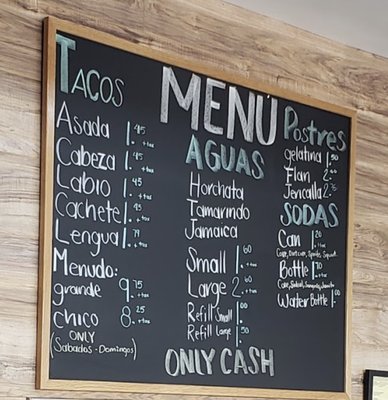 MENÚ
TACOS
Asada 1.45 +tax
Cabeza 1.45 +tax
Labio 1.45 +tax
Cachete 1.45 +tax
Lengua 1.79 +tax
Menudo:
grande 9.75 +tax
chico 8.25 +tax
ONLY
(Sabados - Domingos)
AGUAS
Horchata
Tamarindo
Jamaica
Small 1.60 +tax
Large 2.60 +tax
Refill Small 1.00
Refill Large 1.50
ONLY CASH
Postres
gelatina 1.50
Flan 2.
Jericalla 2.75
SODAS
Can 1.20 +tax
Bottle 1.70 +tax
Water Bottle 1.00